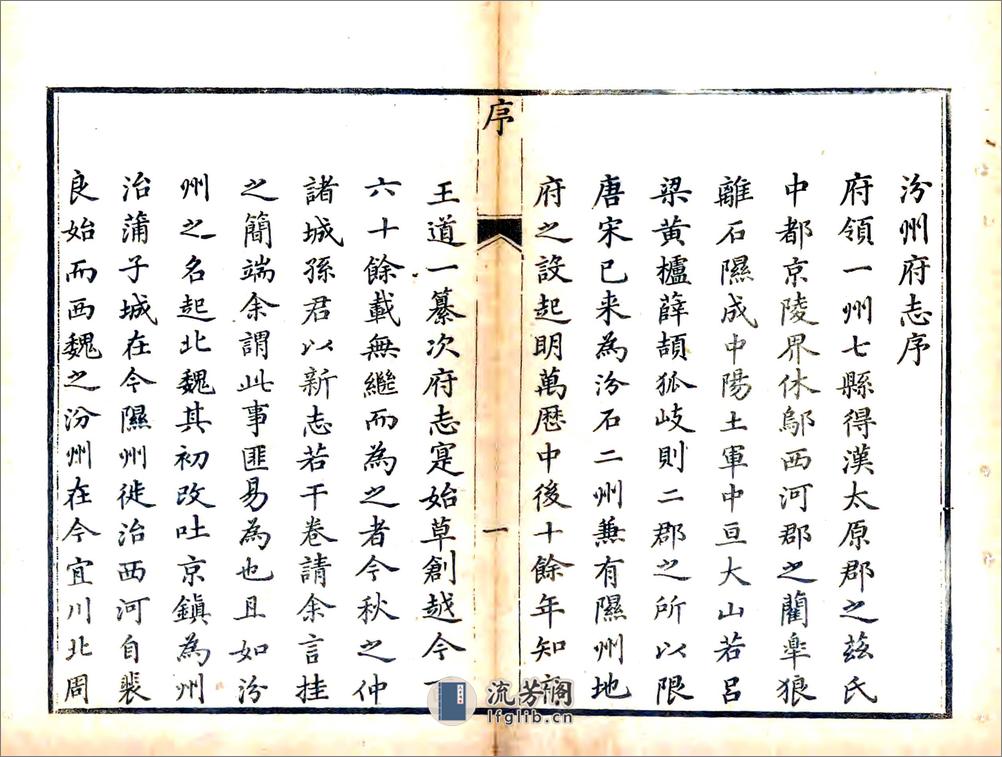 汾州府志序
府領一州七縣得漢太原郡之茲氏
中都京陵界休鄔西河郡之藺臯狼
離石隰成中陽土軍中亘大山若呂
梁黃櫨薛頡狐岐則二郡之所以限
唐宋已来為汾石二州兼有隰州地
府之設起明萬曆中後十餘年知
序
一
王道一纂次府志寔始草創越今一
六十餘載無繼而為之者今秋之仲
諸城孫君以新志若干卷請余言挂
之簡端余謂此事匪易為也且如汾
州之名起北魏其初改吐京鎮為州
治蒲子城在今隰州徙治西河自裴
良始而西魏之汾州在今宜川北周
流芳阁
lfglib.cn